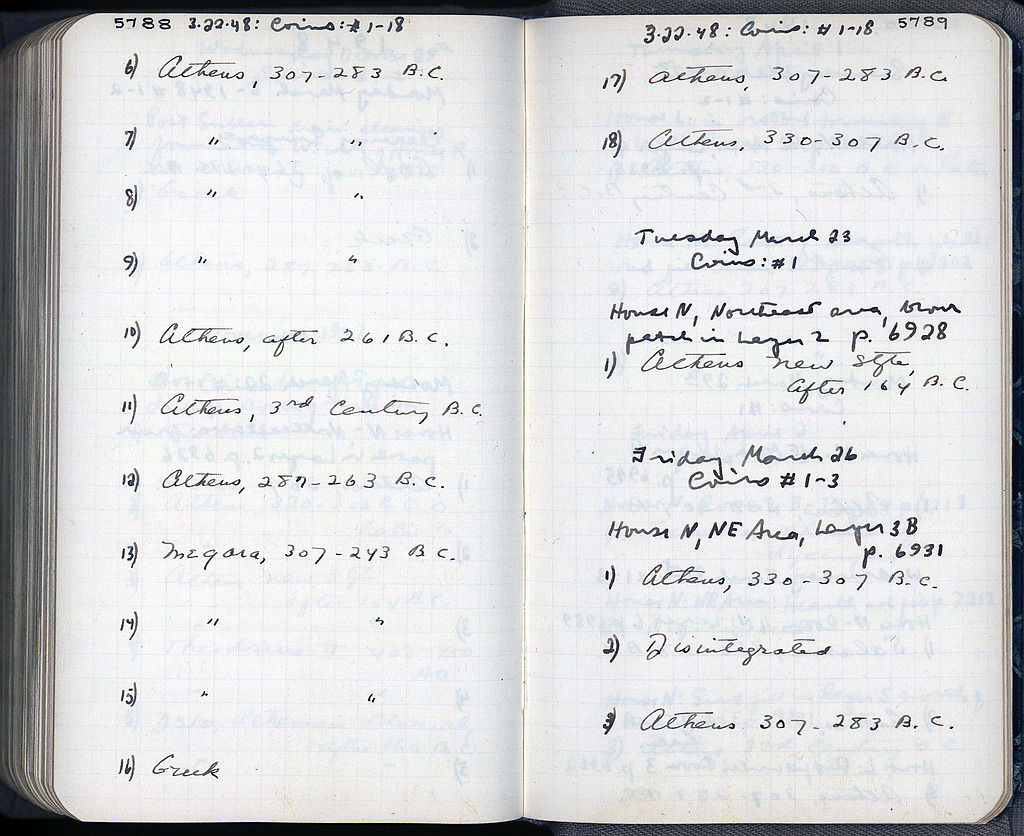 5788 3.22.48: Coins: #1-18
6) Athens, 307-283 B.C.
7) " "
8) " "
9) " "
10) Athens, after 261 B.C.
11) Athens, 3rd Century B.C.
12) Athens, 287-263 B.C.
13) Megara, 307-243 B.C.
14) " "
15) " "
16) Greek
3.22.48: Coins: #1-18 5789
17) Athens, 307-283 B.C.
18) Athens, 330-307 B.C.
Tuesday March 23
Coins: #1
House N, Northeast area, brown
patch in Layer 2 p. 6928
1) Athens new style,
after 164 B.C.
Friday March 26
Coins #1-3
House N, NE Area, Layer 3B
p. 6931
1) Athens, 330-307 B.C.
2) Disintegrated
3) Athens 307-283 B.C.